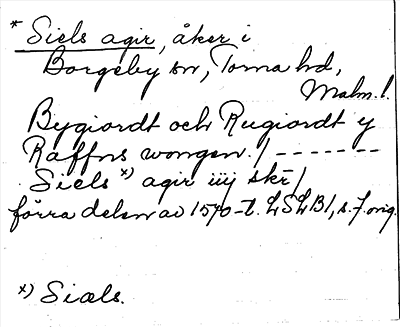 * Siels agir, åker i
Borgeby sn, Torna hd,
Malm. l.
Bygiordt och Rugiordt y
Raffns wongen. / - - - - - - -
Siels x) agir iiij skr /
förra delen av 1570-t. LSLB1, s. 7 orig.
x) Siæls.